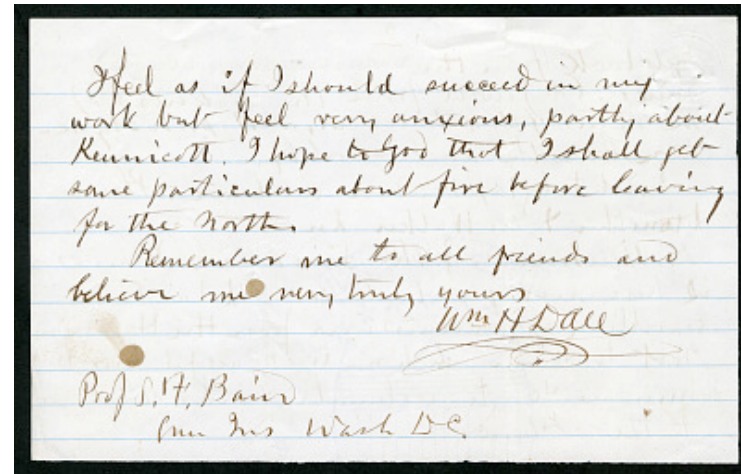 I feel as if I should succeed in my
work but feel very anxious, partly about
Kennicott. I hope to God that I shall get
some particulars about fire before leaving
for the North.
Remember me to all friends and
believe me very truly yours
Wm H Dall
Prof S. F. Baird
Smn Ins Wash D.C.